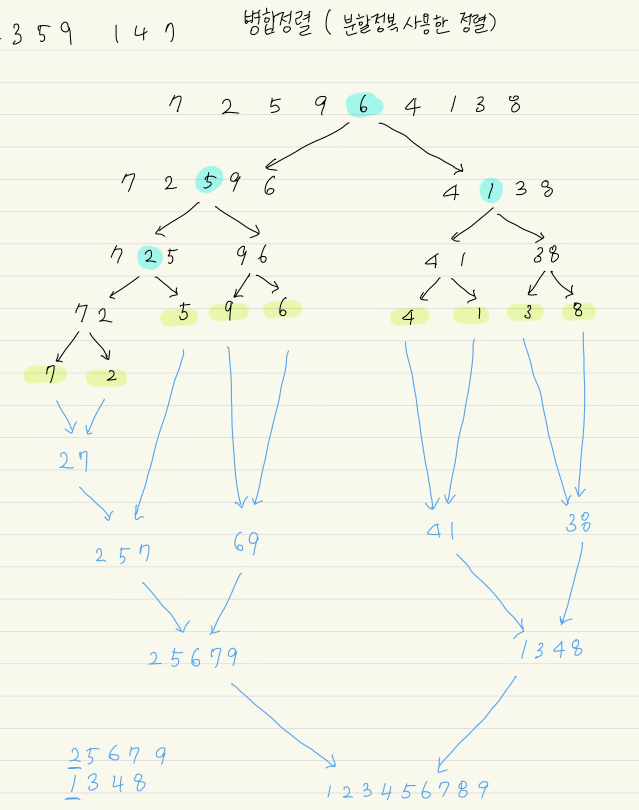 3 5 9 1 4 7
병합정렬 ( 분할정복 사용한 정렬)
7 2 5 9 6 4 1 3 8
7 2 5 9 6 4 1 3 8
7 2 5 9 6 4 1 3 8
7 2 5 9 6 4 1 3 8
7 2
2 7
2 5 7 6 9 4 1 3 8
2 5 6 7 9 1 3 4 8
2 5 6 7 9
1 3 4 8
1 2 3 4 5 6 7 8 9